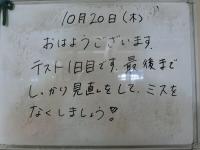 10月20日(木)
おはようございます。
テスト1日目です。最後まで
しっかり見直しをして、ミスを
なくしましょう!